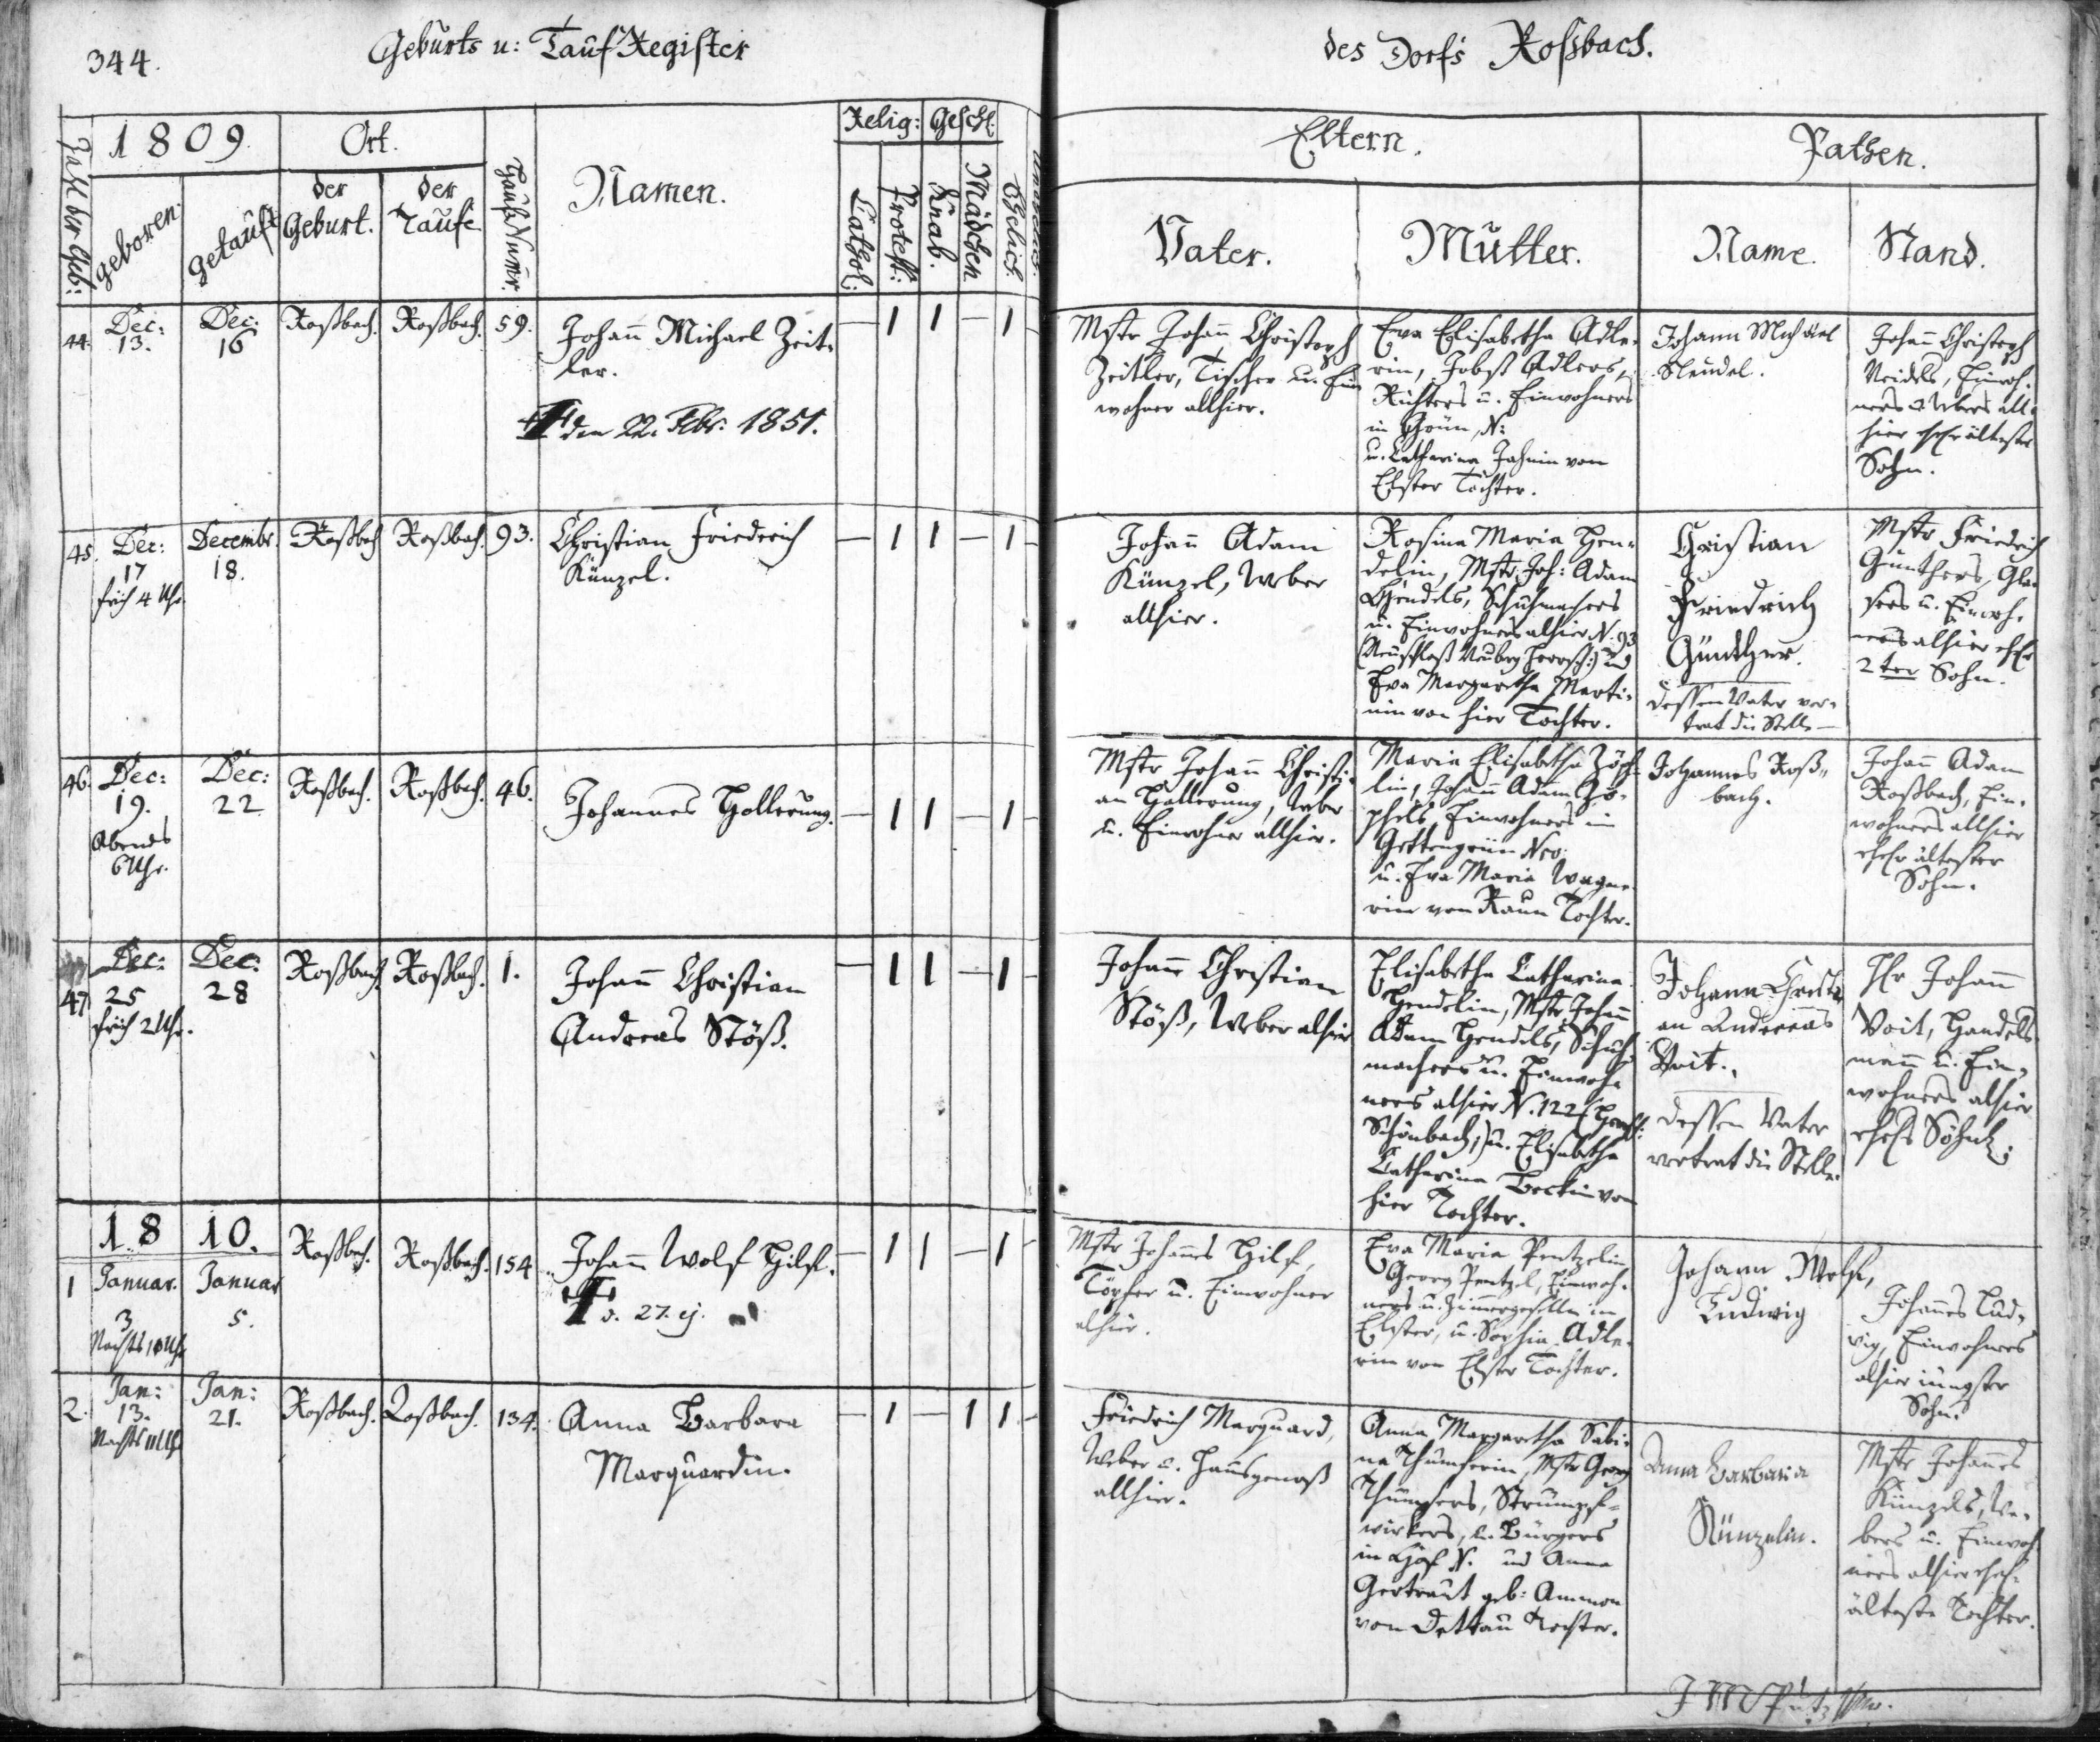 344.
Geburts u: Tauf Register
des Dorfs Roßbach.
Zahl der Geb:
1809
geboren.
getauft
Ort.
der Geburt.
der Taufe
Hauß Numer.
Namen.
Relig:
Cathol:
Protest:
Geschl:
Knab.
Mädchen
Ehelich.
Unehelich.
Eltern.
Vater.
Mutter.
Pathen.
Name.
Stand.
44.
Dec:
13.
Dec:
16
Roßbach.
Roßbach.
59.
Johann Michael Zeit-
ler.
† den 22. Febr: 1851.
— 1 1 — 1
Mstr Johann Christoph
Zeitler, Tischer u. Ein
wohner allhier.
Eva Elisabetha Adle-
rin, Jobst Adlers,
Richters u. Einwohners
in Grün, N:
u. Catharina Jahnin von
Elster Tochter.
Johann Michael
Neudel.
Johann Christoph
Neidels, Einwoh-
ners u. Webers all-
hier ehel ältester
Sohn.
45.
Dec:
17
früh 4 Uhr.
Decembr.
18.
Roßbach
Roßbach.
93.
Christian Friederich
Künzel.
— 1 1 — 1
Johann Adam
Künzel, Weber
allhier.
Rosina Maria Hen-
delin, Mstr. Joh: Adam
Hendels, Schuhmachers
u. Einwohners alhier N. 93
(Neuschloß Neuberg Herrsch:) und
Eva Margaretha Marti-
nin von hier Tochter.
Christian
Friedrich
Günther.
dessen Vater ver-
trat die Stelle —
Mstr Friedrich
Günthers, Gla-
sers u. Einwoh-
ners alhier ehl
2ter Sohn.
46.
Dec:
19.
Abends
6 Uhr.
Dec:
22
Roßbach.
Roßbach.
46.
Johannes Hollerung.
— 1 1 — 1
Mstr Johann Christi-
an Hollerung, Weber
u. Einwohner allhier.
Maria Elisabetha Zöph-
lin, Johann Adam Zö-
phels Einwohners in
Gettengrün Nro:
u. Eva Maria Wagne-
rin von Raun Tochter.
Johannes Roß-
bach.
Johann Adam
Roßbach, Ein-
wohners allhier
ehelr ältester
Sohn.
47
Dec:
25
früh 2 Uhr.
Dec:
28
Roßbach
Roßbach.
1.
Johann Christian
Andreas Stöß.
— 1 1 — 1
Johann Christian
Stöß, Weber alhier
Elisabetha Catharina
Hendelin, Mstr Johann
Adam Hendels, Schuh
machers u. Einwoh
ners alhier N. 122 (Herrsch:
Schönbach;) u. Elisabetha
Catharina Beckin von
hier Tochter.
Johann Christi
an Andereas
Voit.
dessen Vater
vertrat die Stelle.
Hr Johann
Voit, Handels
mann u. Ein-
wohners alhier
ehels Söhnl.
1810.
1
Januar.
3
Nachts 10 Uhr
Januar
5.
Roßbach.
Roßbach.
154
Johann Wolf Hilf.
† d. 27. ej.
— 1 1 — 1
Mstr Johannes Hilf,
Töpfer u. Einwohner
alhier.
Eva Maria Pentzelin
Georg Pentzel, Einwoh-
ners u. Zimmergeselle in
Elster, u. Sophia Adle-
rin von Elster Tochter.
Johann Wolf,
Ludwig
Johannes Lud-
wig, Einwohners
alhier jüngster
Sohn.
2.
Jan:
13.
Nachts 11 Uhr
Jan:
21.
Roßbach.
Roßbach.
134.
Anna Barbara
Marquardin.
— 1 — 1 1
Friedrich Marquard,
Weber u. Hausgenoß
allhier.
Anna Margaretha Sabi-
na Thumserin, Mstr Georg
Thumsers, Strumpf-
wirkers, u. Bürgers
in Hof N. und Anna
Gertraut geb: Ammon
von Dettau Tochter.
Anna Barbara
Künzelin.
Mstr Johannes
Künzels, We-
bers u. Einwoh
ners alhier ehel.
älteste Tochter.